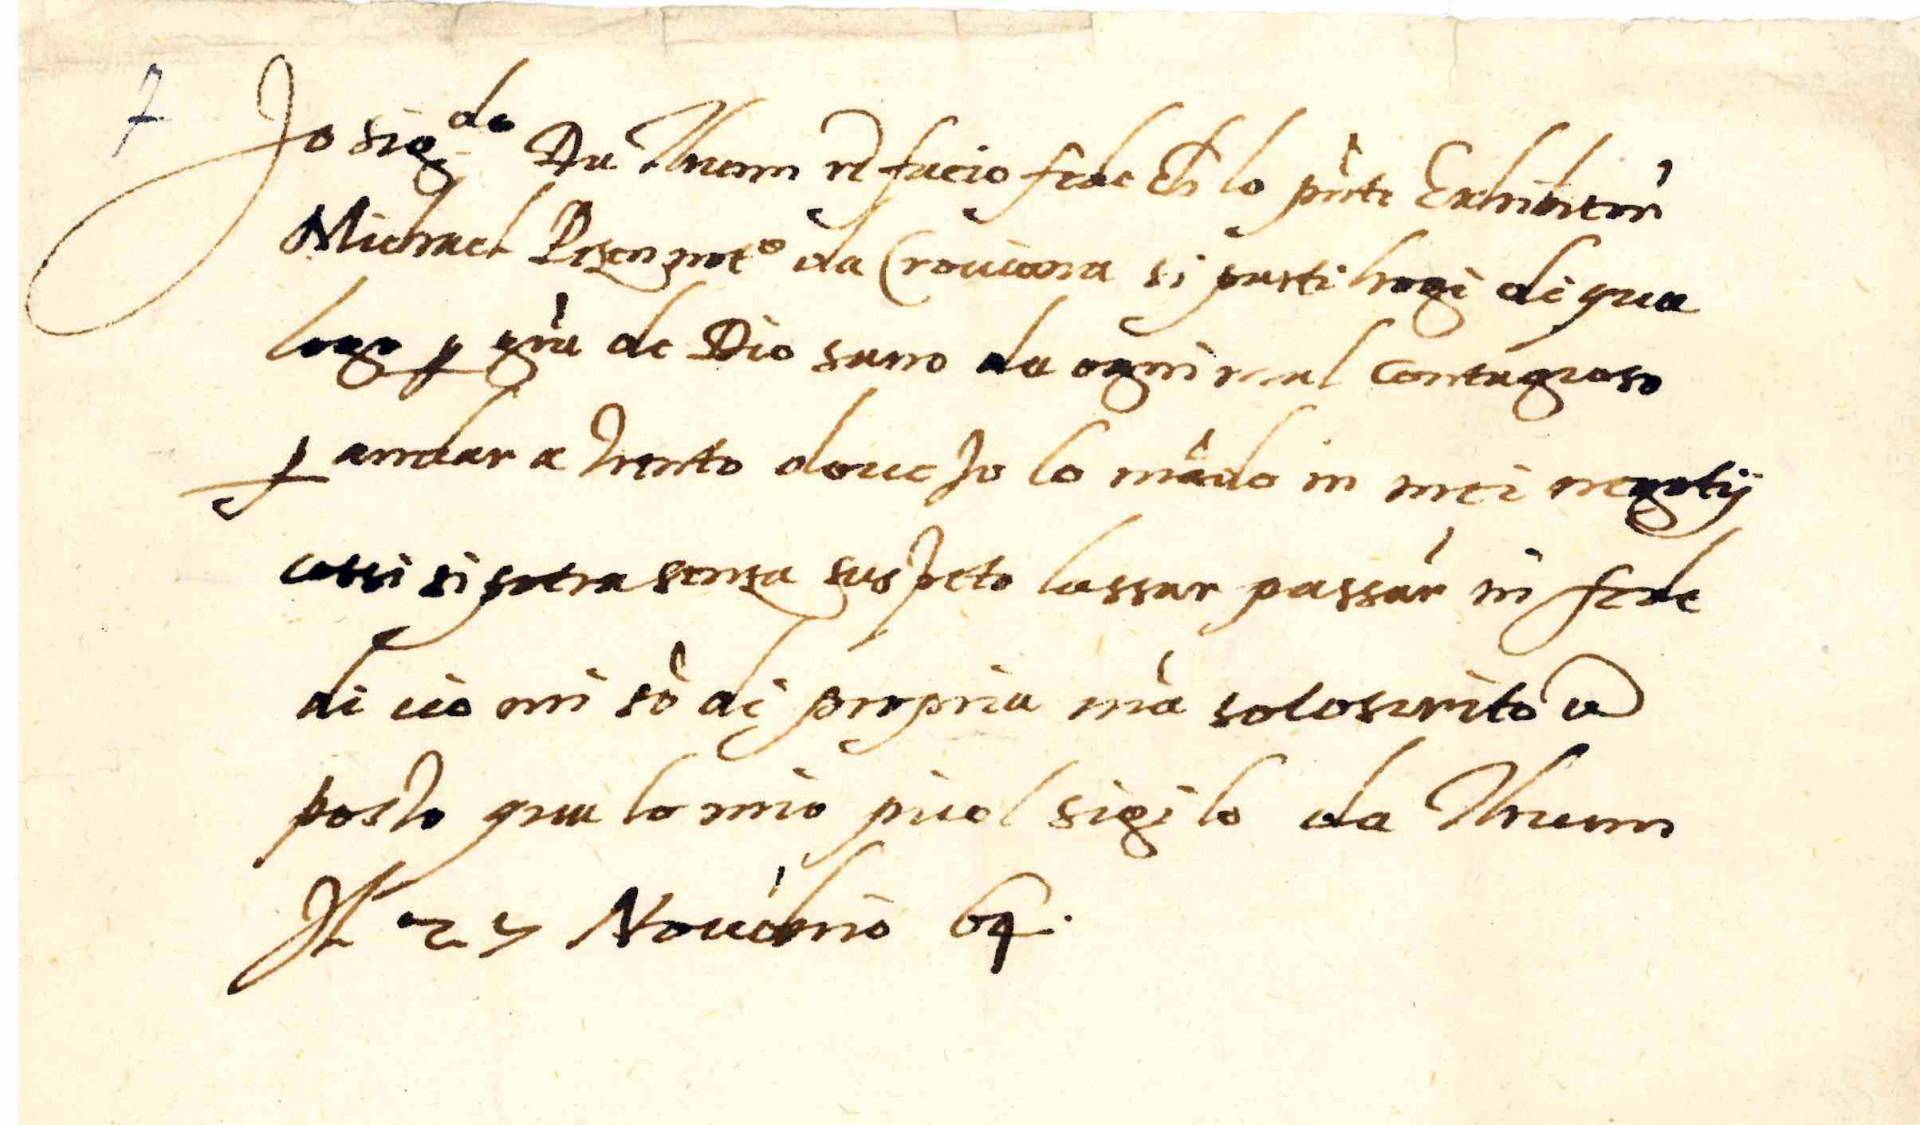 7
Jo Sig.do Da Thunn etc facio fede ch lo pnte Exhibitor
Michael da Croviana si parti hogi di qua
logo p gra de Dio sano da ogni mal contagioso
p andar a Trento dove Jo lo mado in mei negotij
cossi si potra senza suspeto lassar passar in fede
di cio mi so di propria ma sotoscrito et
posto qua lo mio picol sigilo da Thunn
Novebrio